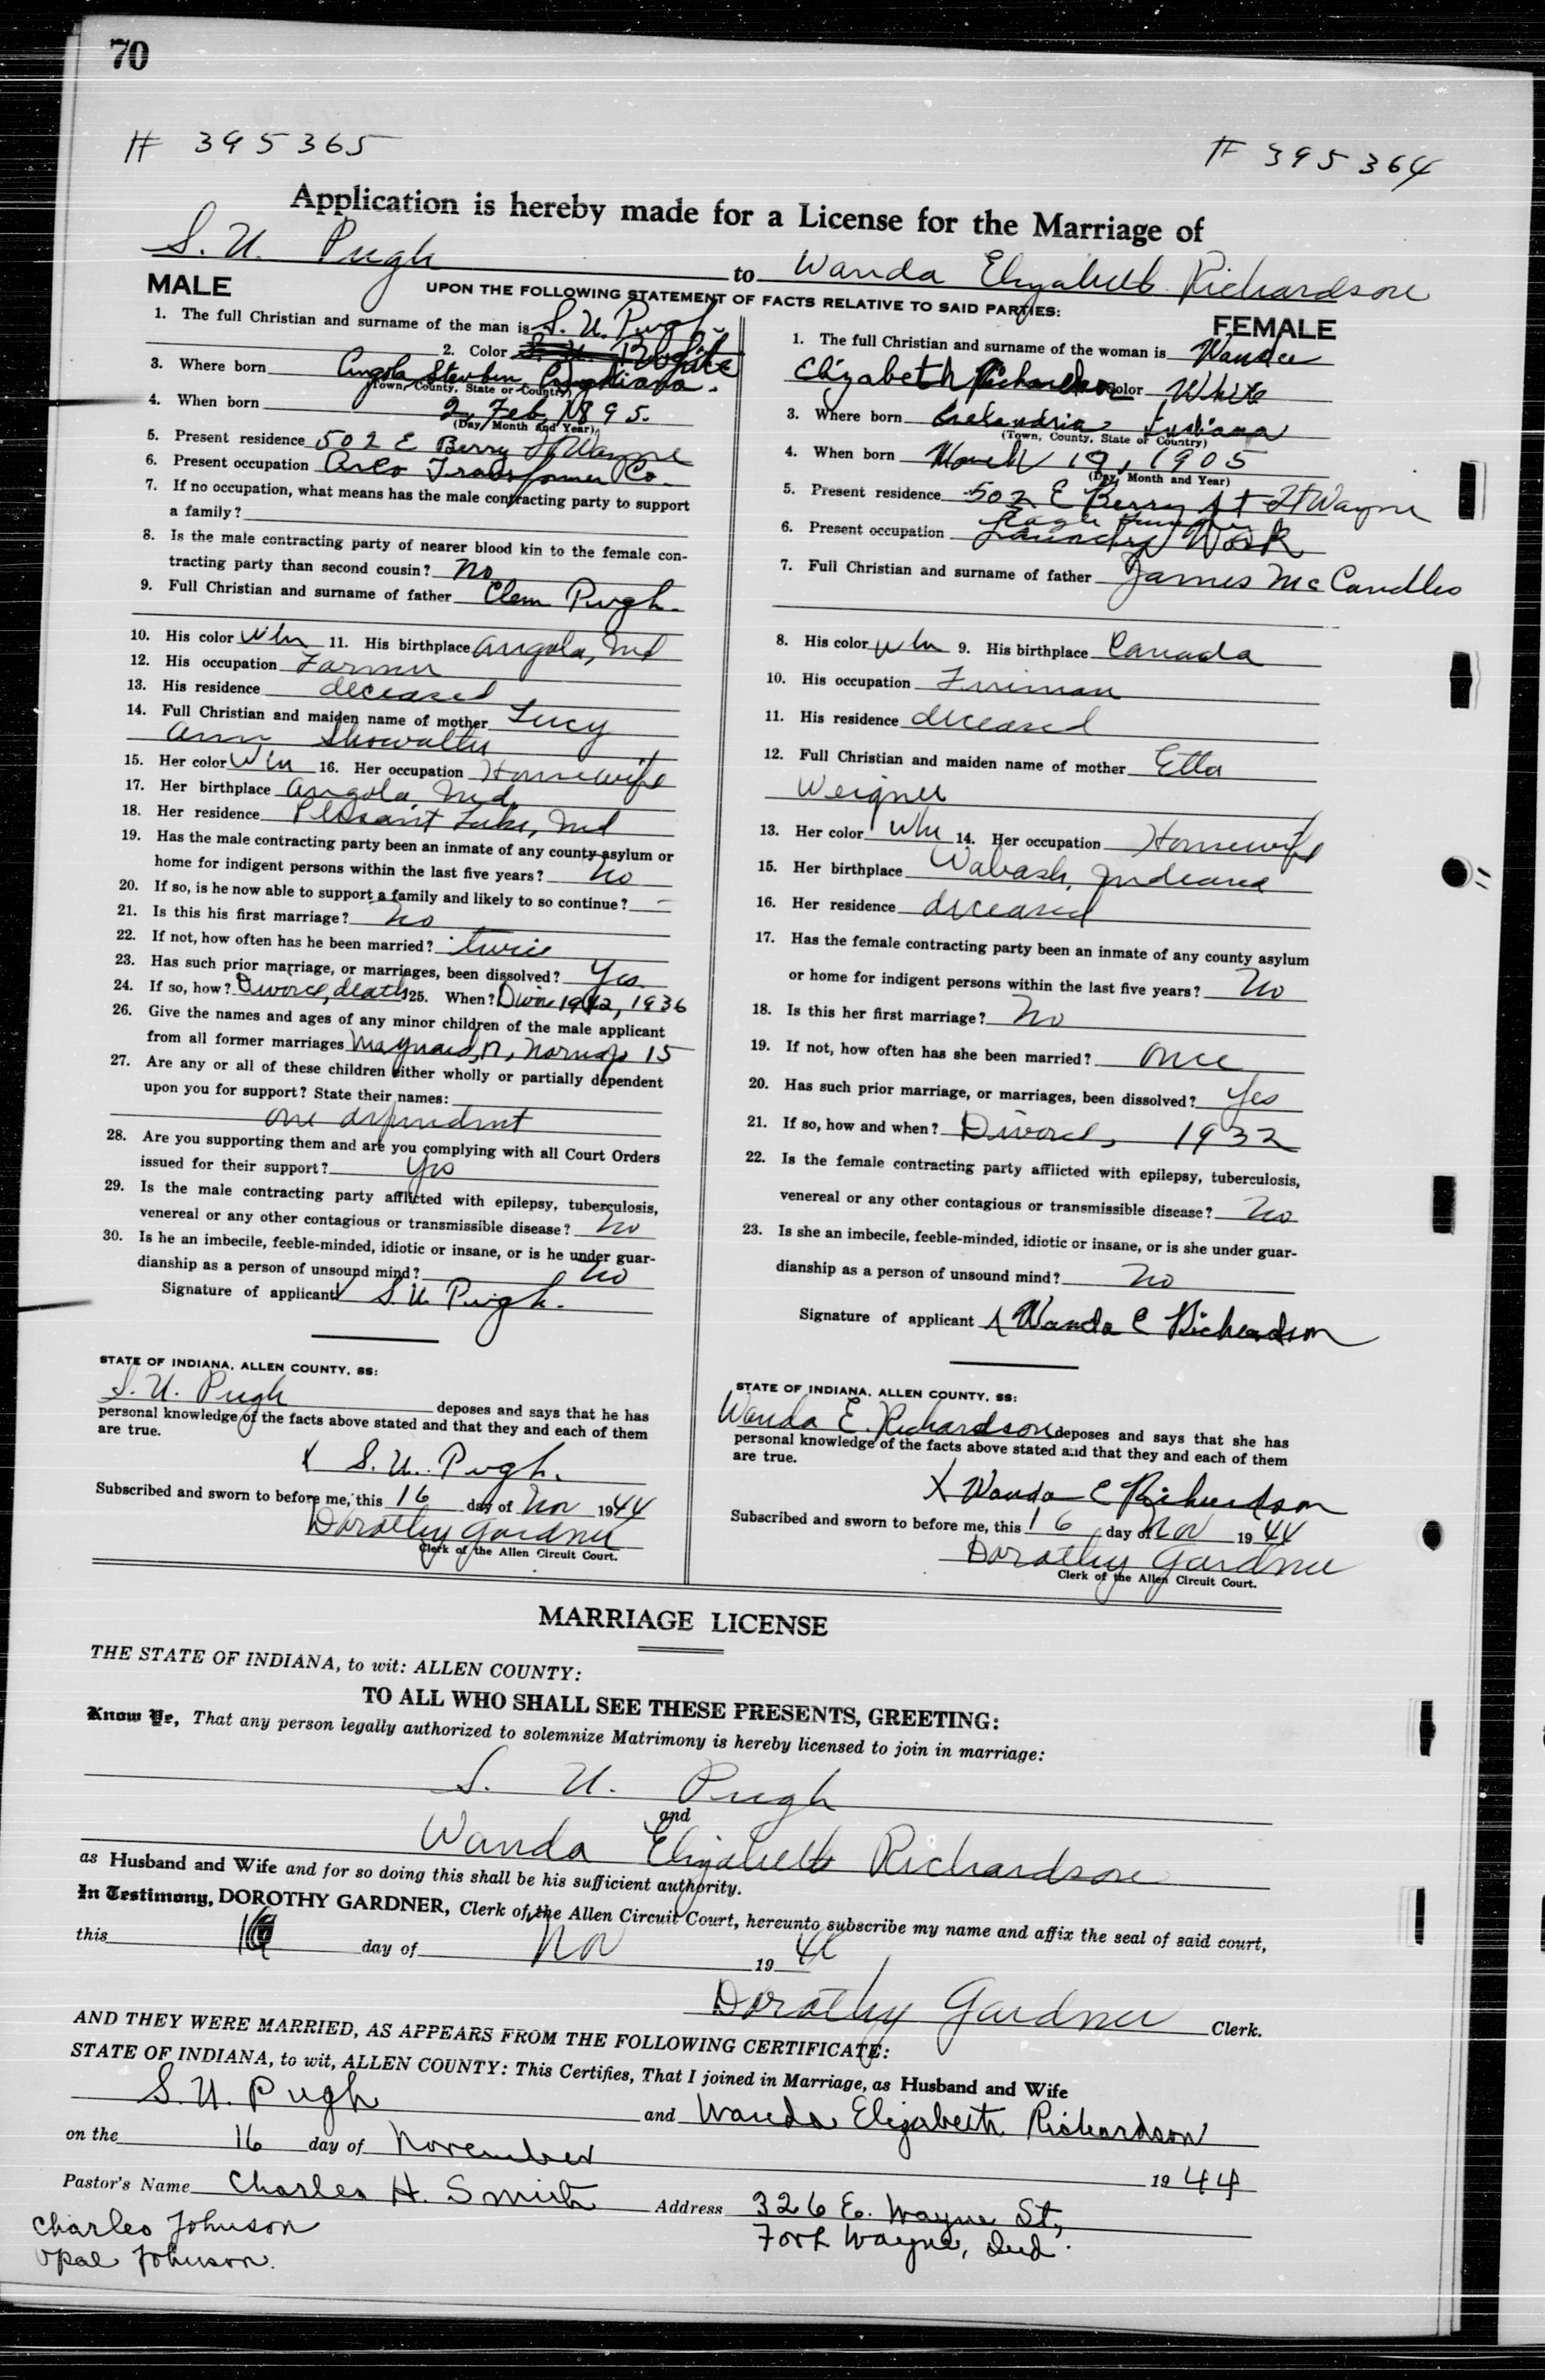 70
# 395365
# 395364
Application is hereby made for a License for the Marriage of
S. U. Pugh to Wanda Elizabeth Richardson
UPON THE FOLLOWING STATEMENT OF FACTS RELATIVE TO SAID PARTIES:
MALE
1. The full Christian and surname of the man is S. U. Pugh
2. Color White
3. Where born Angola Steuben Indiana.
(Town, County, State or Country)
4. When born 2, Feb, 1895.
(Day, Month and Year)
5. Present residence 502 E Berry Ft Wayne
6. Present occupation Transformer Co.
7. If no occupation, what means has the male contracting party to support
a family?
8. Is the male contracting party of nearer blood kin to the female con-
tracting party than second cousin? No
9. Full Christian and surname of father Clem Pugh.
10. His color Wh 11. His birthplace Angola, Ind
12. His occupation Farmer
13. His residence deceased
14. Full Christian and maiden name of mother Lucy
Ann Showalter
15. Her color Wh 16. Her occupation Housewife
17. Her birthplace Angola, Ind.
18. Her residence Pleasant Lake, Ind
19. Has the male contracting party been an inmate of any county asylum or
home for indigent persons within the last five years? No
20. If so, is he now able to support a family and likely to so continue? —
21. Is this his first marriage? No
22. If not, how often has he been married? twice
23. Has such prior marriage, or marriages, been dissolved? Yes.
24. If so, how? Divorce, death 25. When? 1936
26. Give the names and ages of any minor children of the male applicant
from all former marriages Maynard, 15
27. Are any or all of these children either wholly or partially dependent
upon you for support? State their names:
one dependent
28. Are you supporting them and are you complying with all Court Orders
issued for their support? Yes
29. Is the male contracting party afflicted with epilepsy, tuberculosis,
venereal or any other contagious or transmissible disease? No
30. Is he an imbecile, feeble-minded, idiotic or insane, or is he under guar-
dianship as a person of unsound mind? No
Signature of applicant S. U. Pugh.
STATE OF INDIANA, ALLEN COUNTY, SS:
S. U. Pugh deposes and says that he has
personal knowledge of the facts above stated and that they and each of them
are true.
X S. U. Pugh.
Subscribed and sworn to before me, this 16 day of Nov 1944
Dorothy Gardner
Clerk of the Allen Circuit Court.
FEMALE
1. The full Christian and surname of the woman is Wanda
Elizabeth Richardson Color White
3. Where born Indiana
(Town, County, State or Country)
4. When born March 19, 1905
(Day, Month and Year)
5. Present residence 502 E Berry St Ft Wayne
6. Present occupation Laundry Work
7. Full Christian and surname of father James McCandles
8. His color Wh 9. His birthplace Canada
10. His occupation Fireman
11. His residence deceased
12. Full Christian and maiden name of mother Etta
Weigner
13. Her color Wh 14. Her occupation Housewife
15. Her birthplace Wabash, Indiana
16. Her residence deceased
17. Has the female contracting party been an inmate of any county asylum
or home for indigent persons within the last five years? No
18. Is this her first marriage? No
19. If not, how often has she been married? once
20. Has such prior marriage, or marriages, been dissolved? Yes
21. If so, how and when? Divorce, 1932
22. Is the female contracting party afflicted with epilepsy, tuberculosis,
venereal or any other contagious or transmissible disease? No
23. Is she an imbecile, feeble-minded, idiotic or insane, or is she under guar-
dianship as a person of unsound mind? No
Signature of applicant X Wanda E Richardson
STATE OF INDIANA, ALLEN COUNTY, SS:
Wanda E. Richardson deposes and says that she has
personal knowledge of the facts above stated and that they and each of them
are true.
X Wanda E Richardson
Subscribed and sworn to before me, this 16 day of Nov 1944
Dorothy Gardner
Clerk of the Allen Circuit Court.
MARRIAGE LICENSE
THE STATE OF INDIANA, to wit: ALLEN COUNTY:
TO ALL WHO SHALL SEE THESE PRESENTS, GREETING:
Know Ye, That any person legally authorized to solemnize Matrimony is hereby licensed to join in marriage:
S. U. Pugh
and
Wanda Elizabeth Richardson
as Husband and Wife and for so doing this shall be his sufficient authority.
In Testimony, DOROTHY GARDNER, Clerk of the Allen Circuit Court, hereunto subscribe my name and affix the seal of said court,
this 16 day of Nov 1944
Dorothy Gardner Clerk.
AND THEY WERE MARRIED, AS APPEARS FROM THE FOLLOWING CERTIFICATE:
STATE OF INDIANA, to wit, ALLEN COUNTY: This Certifies, That I joined in Marriage, as Husband and Wife
S. U. Pugh and Wanda Elizabeth Richardson
on the 16 day of November 1944
Pastor's Name Charles H. Smith Address 326 E. Wayne St,
Charles Johnson Fort Wayne, Ind.
Opal Johnson.